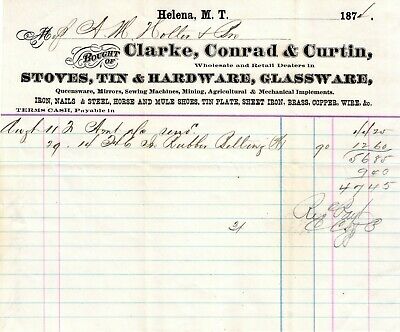 Helena, M. T. 187
A. M. Holter & Bro
BOUGHT OF Clarke, Conrad & Curtin,
Wholesale and Retail Dealers in
STOVES, TIN & HARDWARE, GLASSWARE,
Queensware, Mirrors, Sewing Machines, Mining, Agricultural & Mechanical Implements.
IRON, NAILS & STEEL, HORSE AND MULE SHOES, TIN PLATE, SHEET IRON, BRASS, COPPER, WIRE, &c.
TERMS CASH, Payable in
Augt 11
29 14 In Rubber Belting 90 12 60
56 85
9 40
47 45
Rec Payt